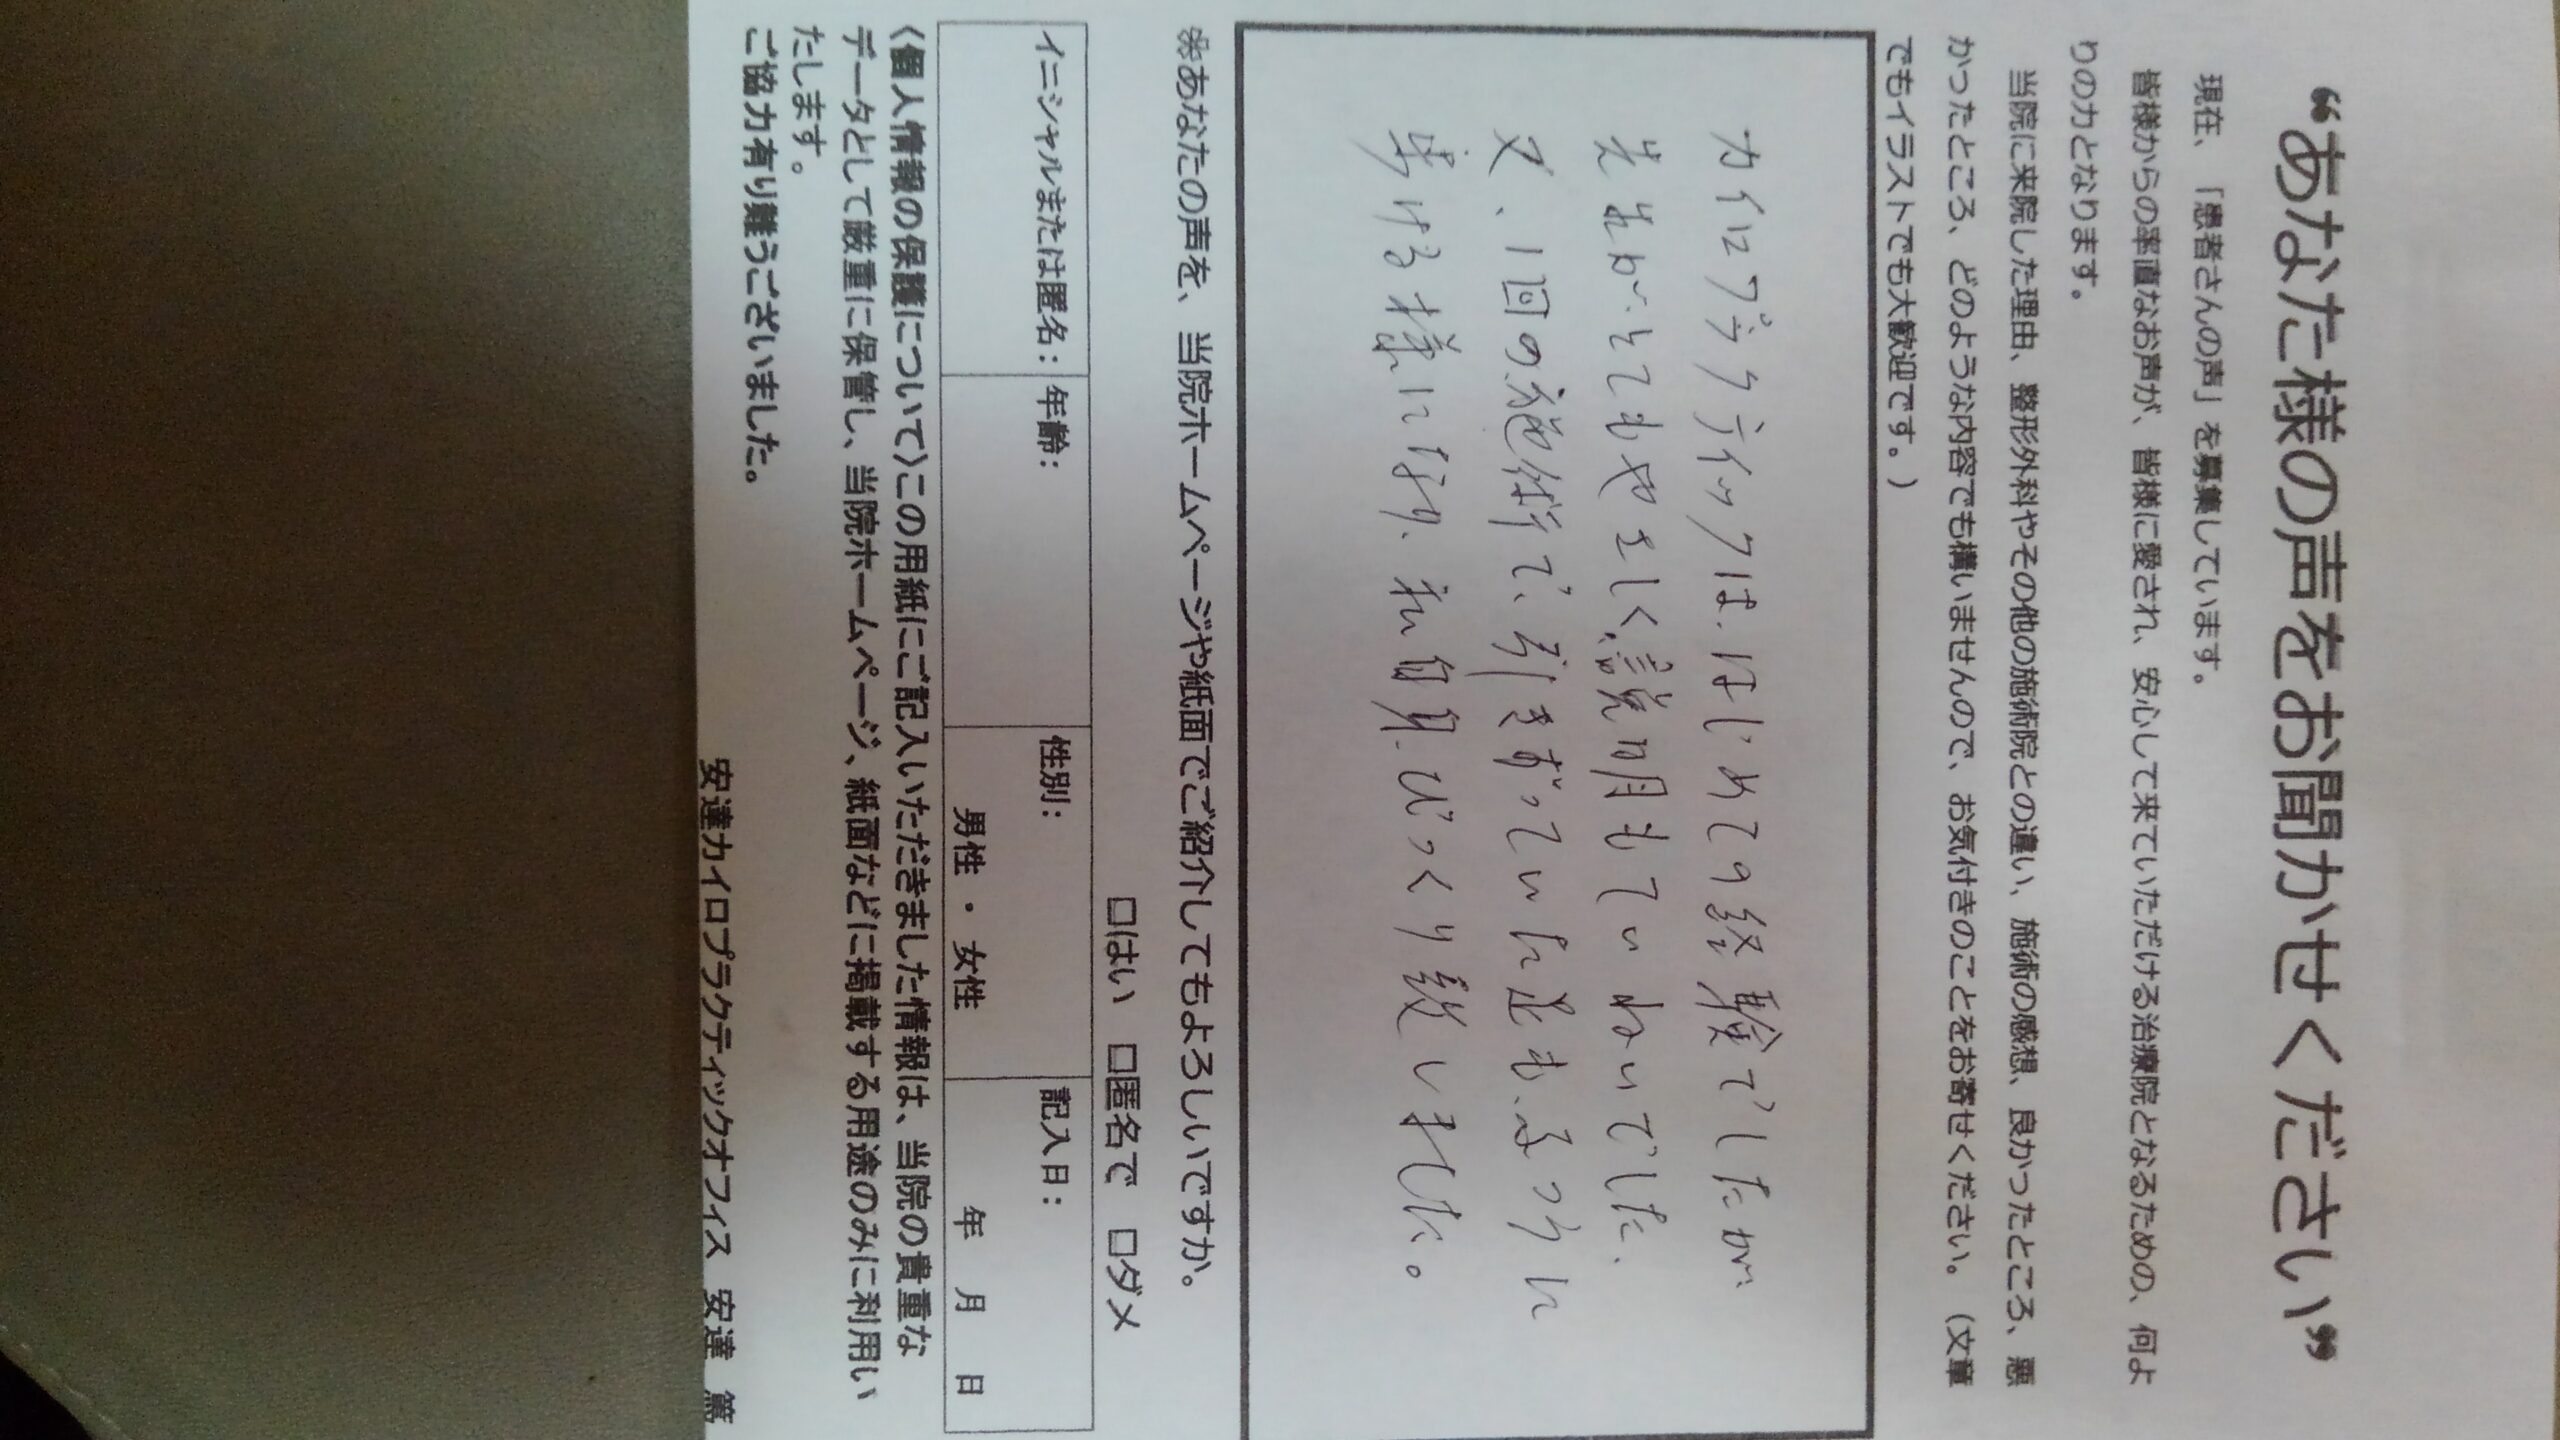 “あなた様の声をお聞かせください”
現在、「患者さんの声」を募集しています。
皆様からの率直なお声が、皆様に愛され、安心して来ていただける治療院となるための、何よ
りのの力となります。
当院に来院した理由、整形外科やその他の施術院との違い、施術の感想、良かったところ、悪
かったところ、どのような内容でも構いませんので、お気付きのことをお寄せください。（文章
でもイラストでも大歓迎です。）
カイロプラクティックは、はじめての経験でしたが、
先生がとてもやさしく、説明もていねいでした、
又、1回の施術で、引きずっていた足も、ふつうに
歩ける様になり、私自身、びっくり致しました。
※あなたの声を、当院ホームページや紙面でご紹介してもよろしいですか。
□はい □匿名で □ダメ
イニシャルまたは匿名： 年齢： 性別： 記入日：
男性 ・ 女性 年 月 日
〈個人情報の保護について〉この用紙にご記入いただきました情報は、当院の貴重な
データとして厳重に保管し、当院ホームページ、紙面などに掲載する用途のみに利用い
たします。
ご協力有り難うございました。
安達カイロプラクティックオフィス 安達 篤